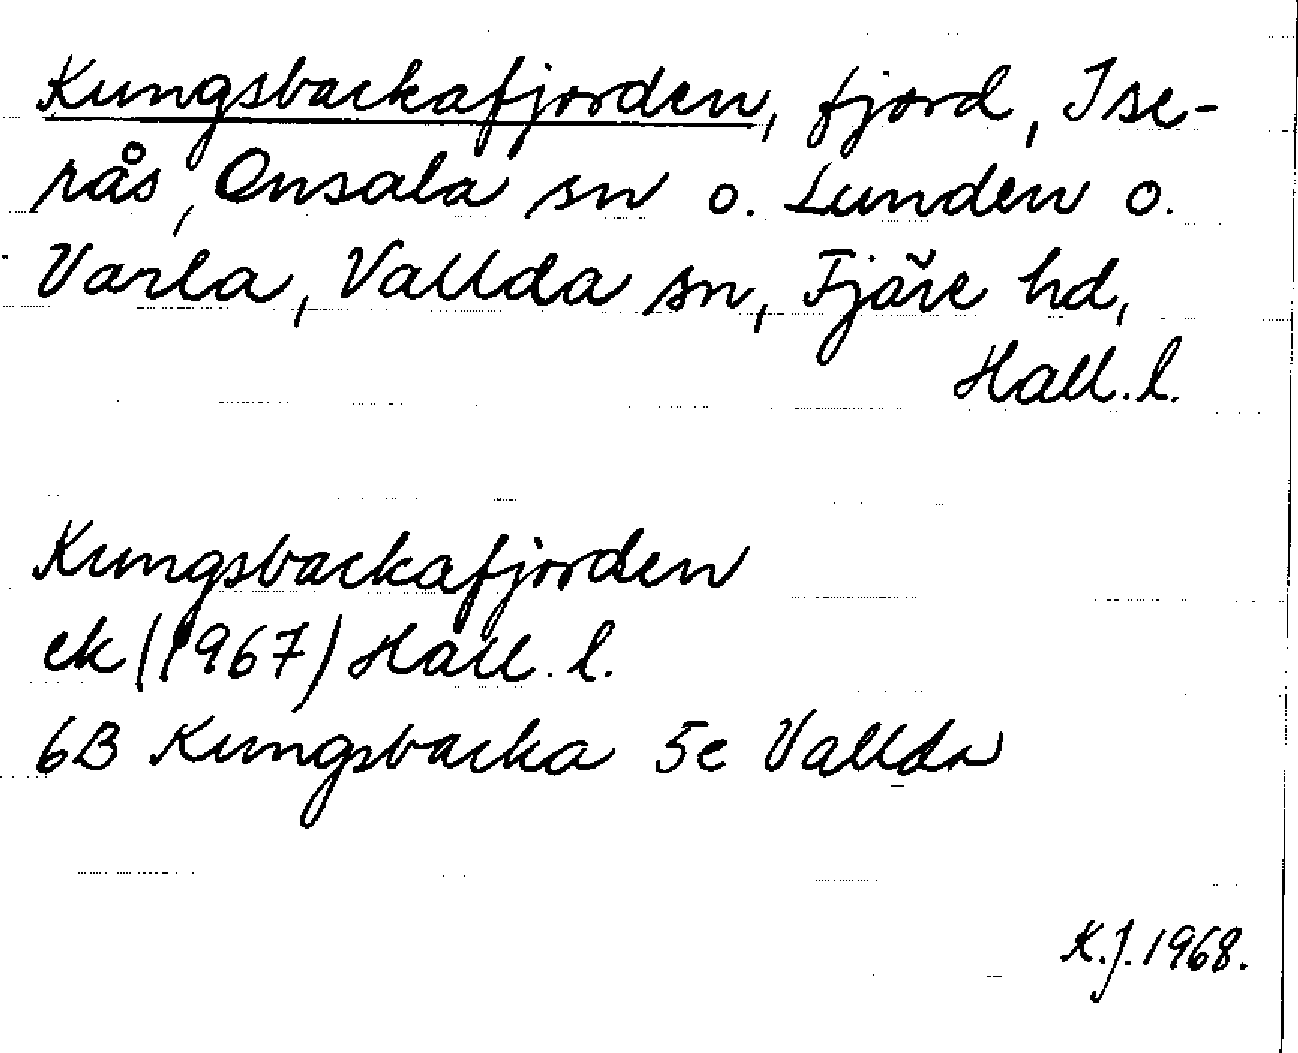 Kungsbackafjorden, fjord, Ise-
rås, Onsala sn o. Lunden o.
Varla, Vallda sn, Fjäre hd,
Hall. l.
Kungsbackafjorden
ek (1967) Hall. l.
6B Kungsbacka 5e Vallda
K.J. 1968.